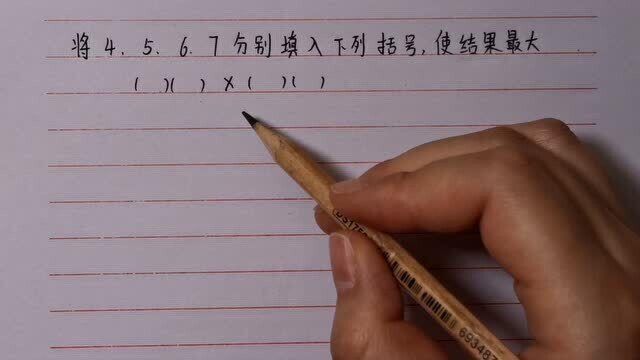 将4、5、6、7分别填入下列括号,使结果最大
( )( ) × ( )( )
693487